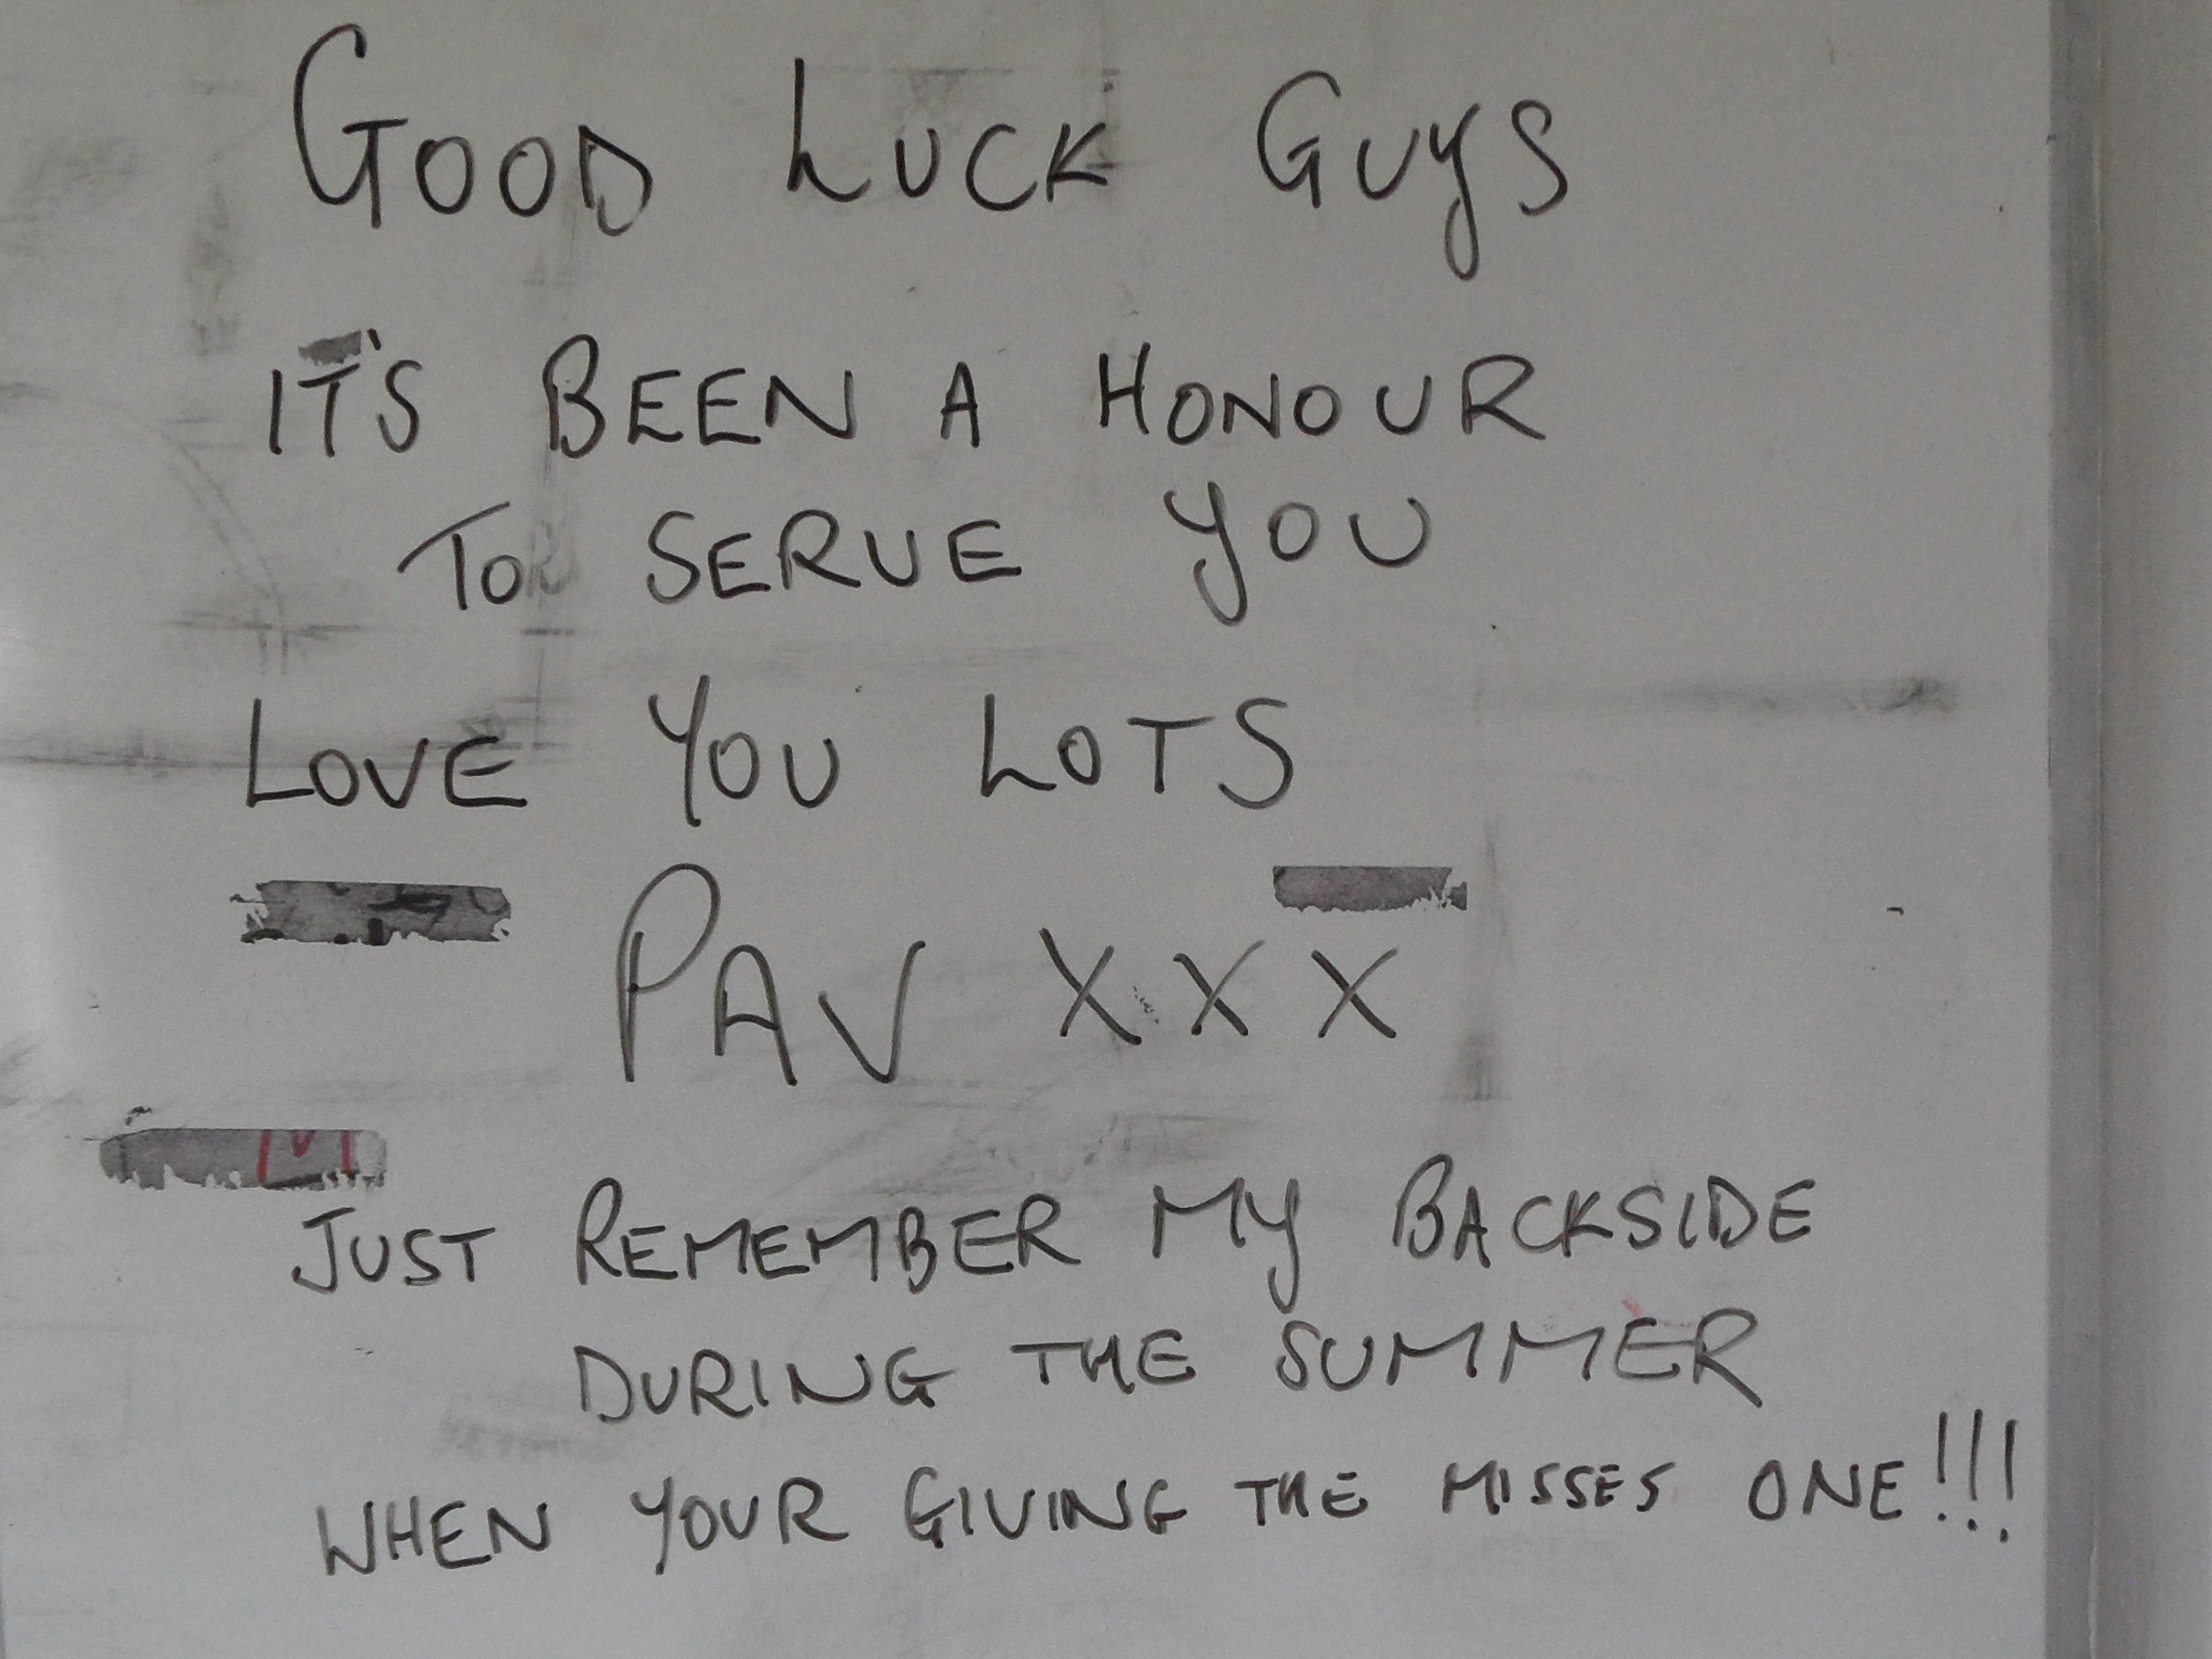 GOOD LUCK GUYS
IT'S BEEN A HONOUR
TO SERVE YOU
LOVE YOU LOTS
PAV X X X
JUST REMEMBER MY BACKSIDE
DURING THE SUMMER
WHEN YOUR GIVING THE MISSES ONE!!!